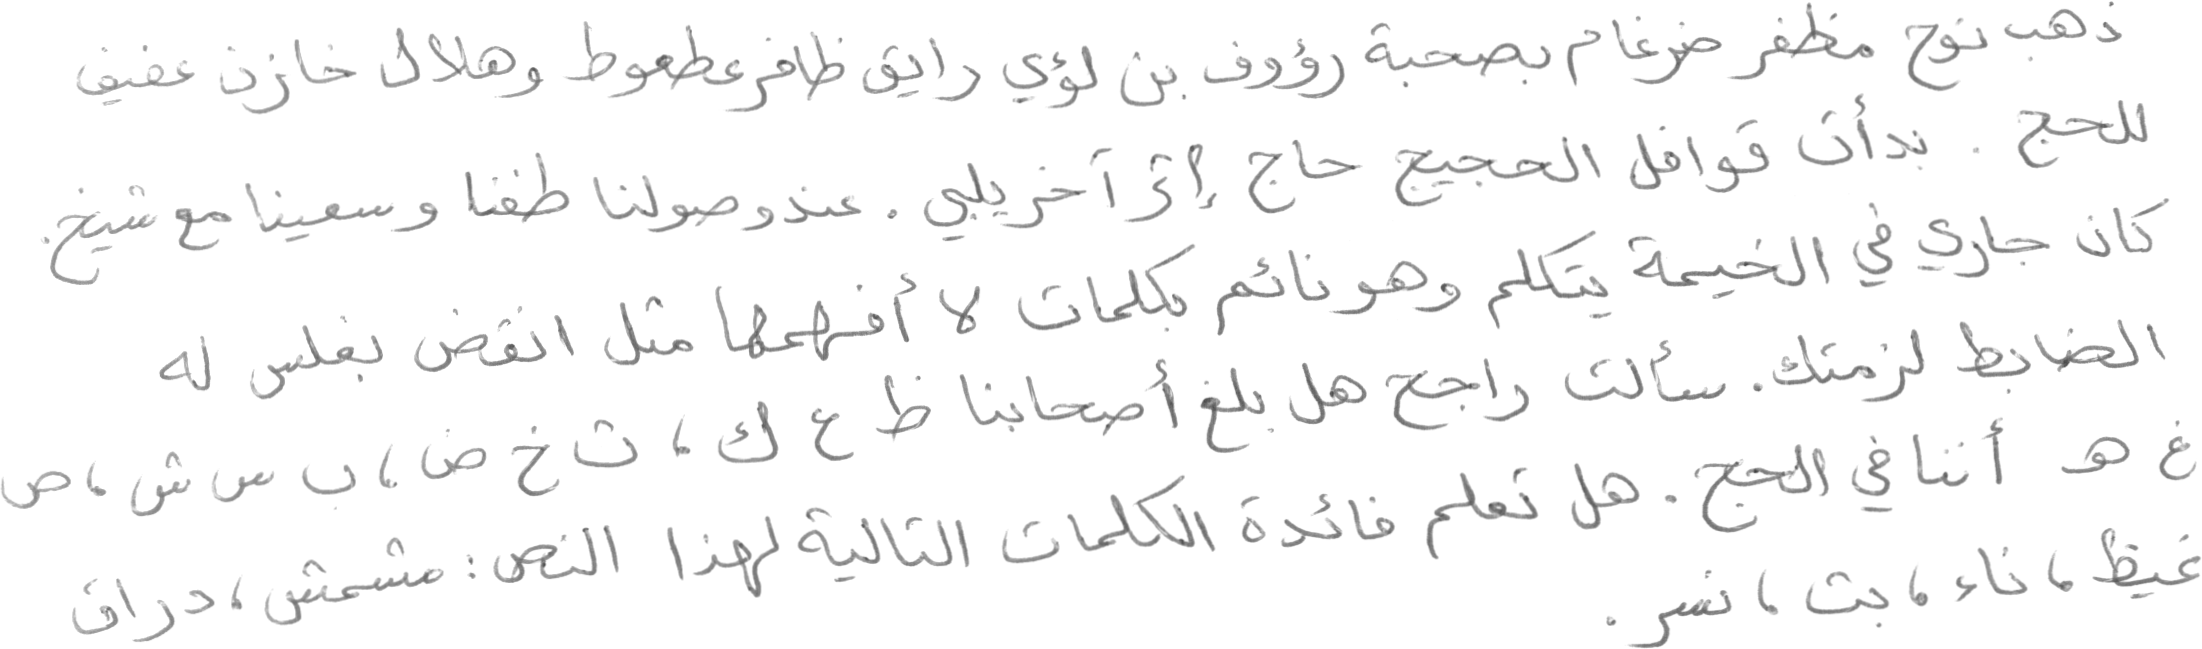 ذهب نوح مظفر ضرغام بصحبة رؤوف بن لؤي رايق ظافر عطعوط وهلال خازن عفيف
للحج . بدأت قوافل الحجيج حاج إثر آخر يلبي . عند وصولنا طفنا وسعينا مع شيخ .
كان جاري في الخيمة يتكلم وهو نائم بكلمات لا أفهمها مثل انقض بغلس له
الضابط لزمتك . سألت راجح هل بلغ أصحابنا ظ ع ك ، ث خ ض ، ب س ش ، ص
غ هـ أننا في الحج . هل تعلم فائدة الكلمات التالية لهذا النص : مشمش ، دراق
غيظ ، ناء ، بت ، نسر .